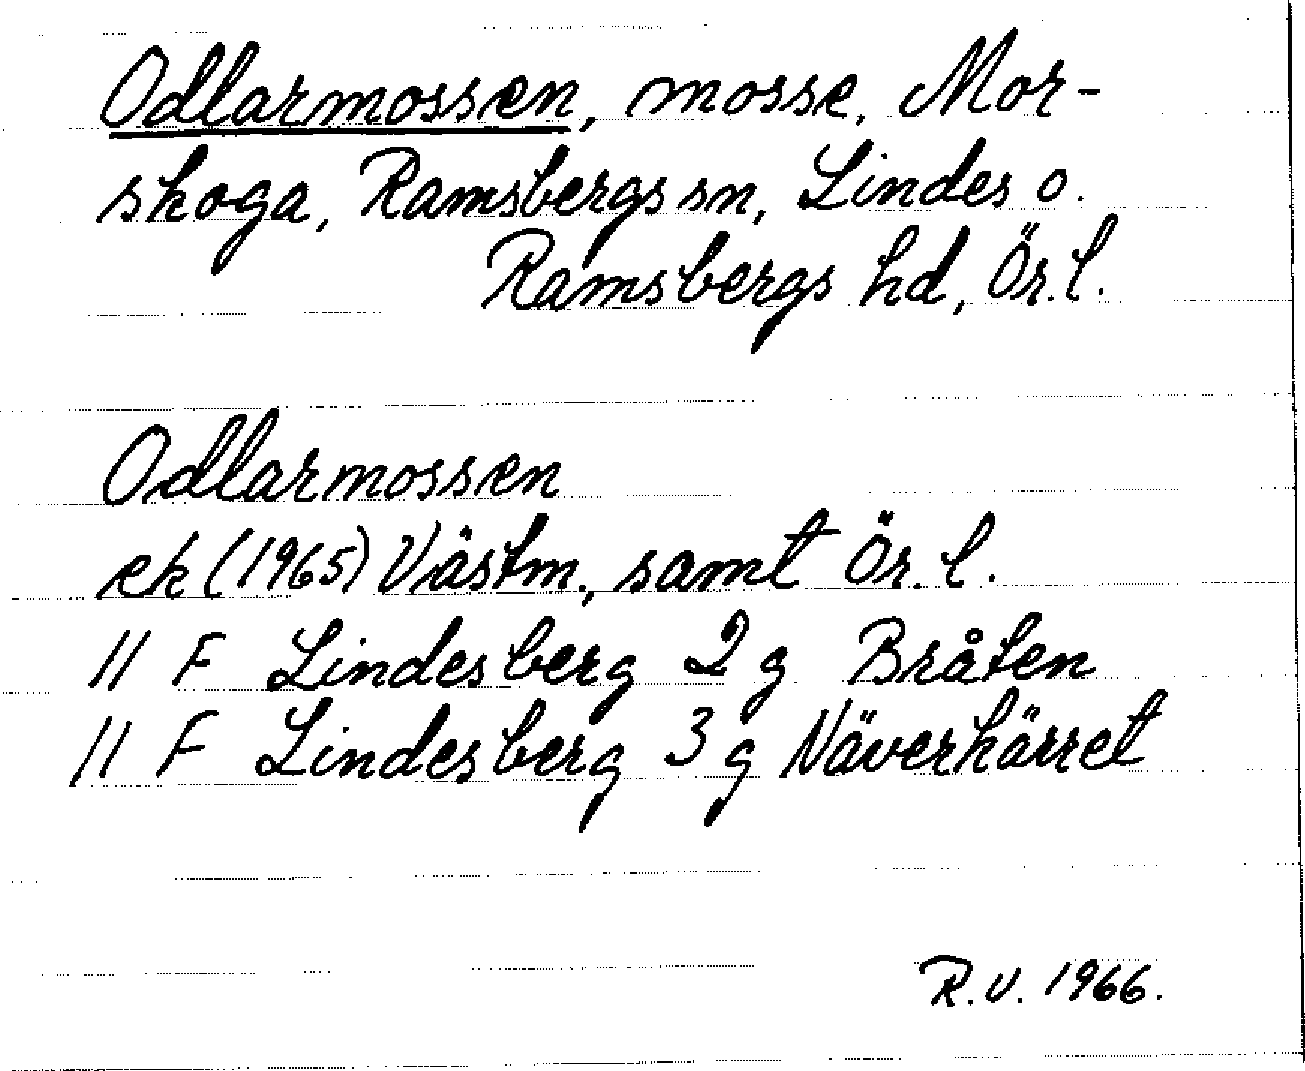 Odlarmossen, mosse, Mor-
skoga, Ramsbergs sn, Lindes o.
Ramsbergs hd, Ör.l.
Odlarmossen
ek (1965) Västm., samt Ör. l.
11 F Lindesberg 2 g Bråten
11 F Lindesberg 3 g Näverkärret
R.V. 1966.